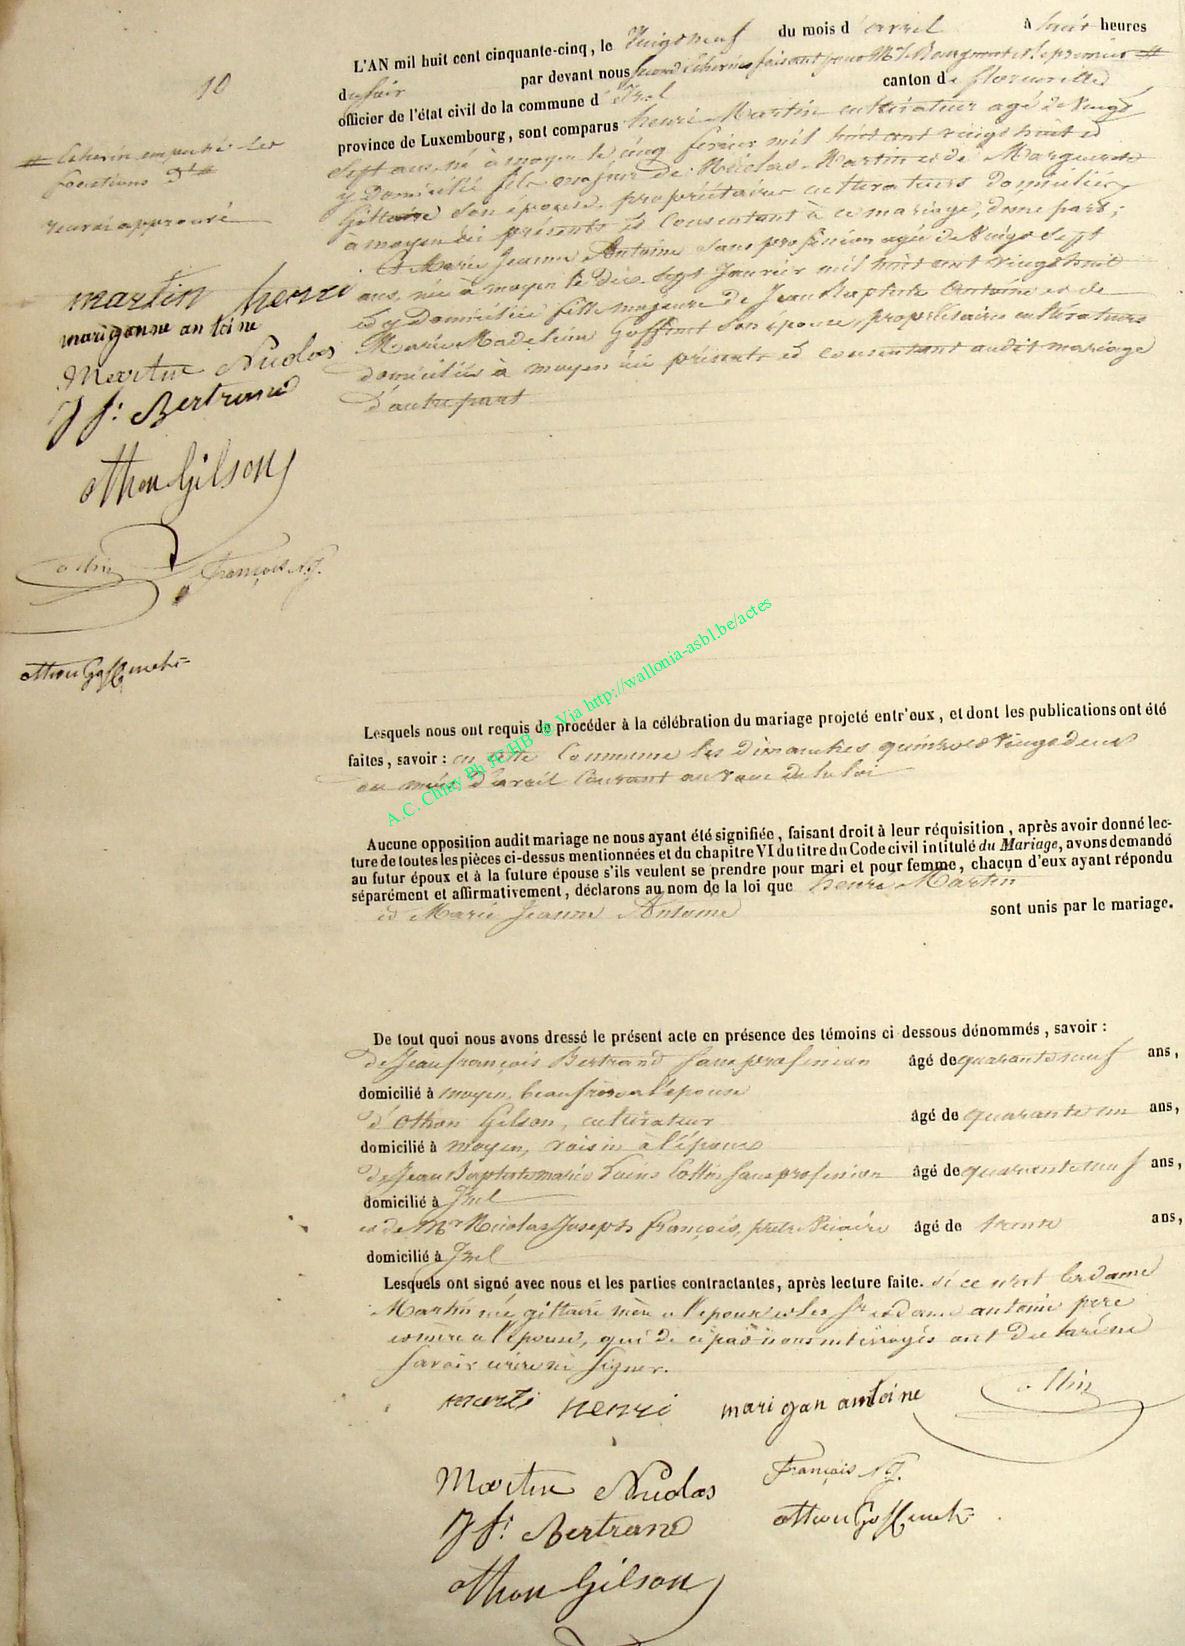 10
L'AN mil huit cent cinquante-cinq, le vingt neuf du mois d'avril à huit heures
du soir par devant nous second Echevin faisant pour Mr le Bourgmestre et le premier #
officier de l'état civil de la commune d'Izel canton de florenville
province de Luxembourg, sont comparus henri Martin cultivateur agé de vingt
sept ans, né à moyen le cinq fevrier mil huit cent vingt huit et
y Domicilié fils majeur de Nicolas Martin et de Marguerite
Gillaire son épouse, propriétaires cultivateurs domiciliés
à moyen ici présents et consentant à ce mariage, d'une part;
Et Marie Jeanne Antoine sans profession agée de vingt sept
ans, née à moyen le dix sept Janvier mil huit cent vingt huit
et y Domiciliée fille majeure de Jean Baptiste Antoine et de
Marie Madeleine Goffinet son épouse, propriétaires cultivateurs
domiciliés à moyen ici présents et consentant audit mariage
d'autre part
# Echevin empeché les
fonctions d' #
renvoi approuvé
martin henri
mariganne antoine
Martin Nicolas
J f: Bertrand
othon Gilson
ollin
François N.J.
othon Goffinet
Lesquels nous ont requis de procéder à la célébration du mariage projeté entr'eux, et dont les publications ont été
faites, savoir: en cette Commune les dimanches quinze et vingt deux
du mois d'avril Courant au vœu de la loi
A.C. Chiny Ph IC.HB © Via http://wallonia-asbl.be/actes
Aucune opposition audit mariage ne nous ayant été signifiée, faisant droit à leur réquisition, après avoir donné lec-
ture de toutes les pièces ci-dessus mentionnées et du chapitre VI du titre du Code civil intitulé du Mariage, avons demandé
au futur époux et à la future épouse s'ils veulent se prendre pour mari et pour femme, chacun d'eux ayant répondu
séparément et affirmativement, déclarons au nom de la loi que henri Martin
et Marie Jeanne Antoine sont unis par le mariage.
De tout quoi nous avons dressé le présent acte en présence des témoins ci dessous dénommés, savoir:
de Jean françois Bertrand sans profession âgé de quarante neuf ans,
domicilié à moyen, beau frère a l'épouse
d'Othon Gilson, cultivateur âgé de quarante un ans,
domicilié à moyen, voisin à l'époux
de Jean Baptiste marie Louis Collin sans profession âgé de quarante neuf ans,
domicilié à Izel
et de Mr Nicolas Joseph françois, pretre vicaire âgé de trente ans,
domicilié à Izel
Lesquels ont signé avec nous et les parties contractantes, après lecture faite. si ce n'est la dame
Martin née gillaire mère a l'époux et les sr et dame antoine père
et mère a l'épouse, qui de ce par nous interrogés ont declaré ne
savoir écrire ni signer.
marti henri marigan antoine ollin
Martin Nicolas François N.J.
J f: Bertrand othon Goffinet
othon Gilson